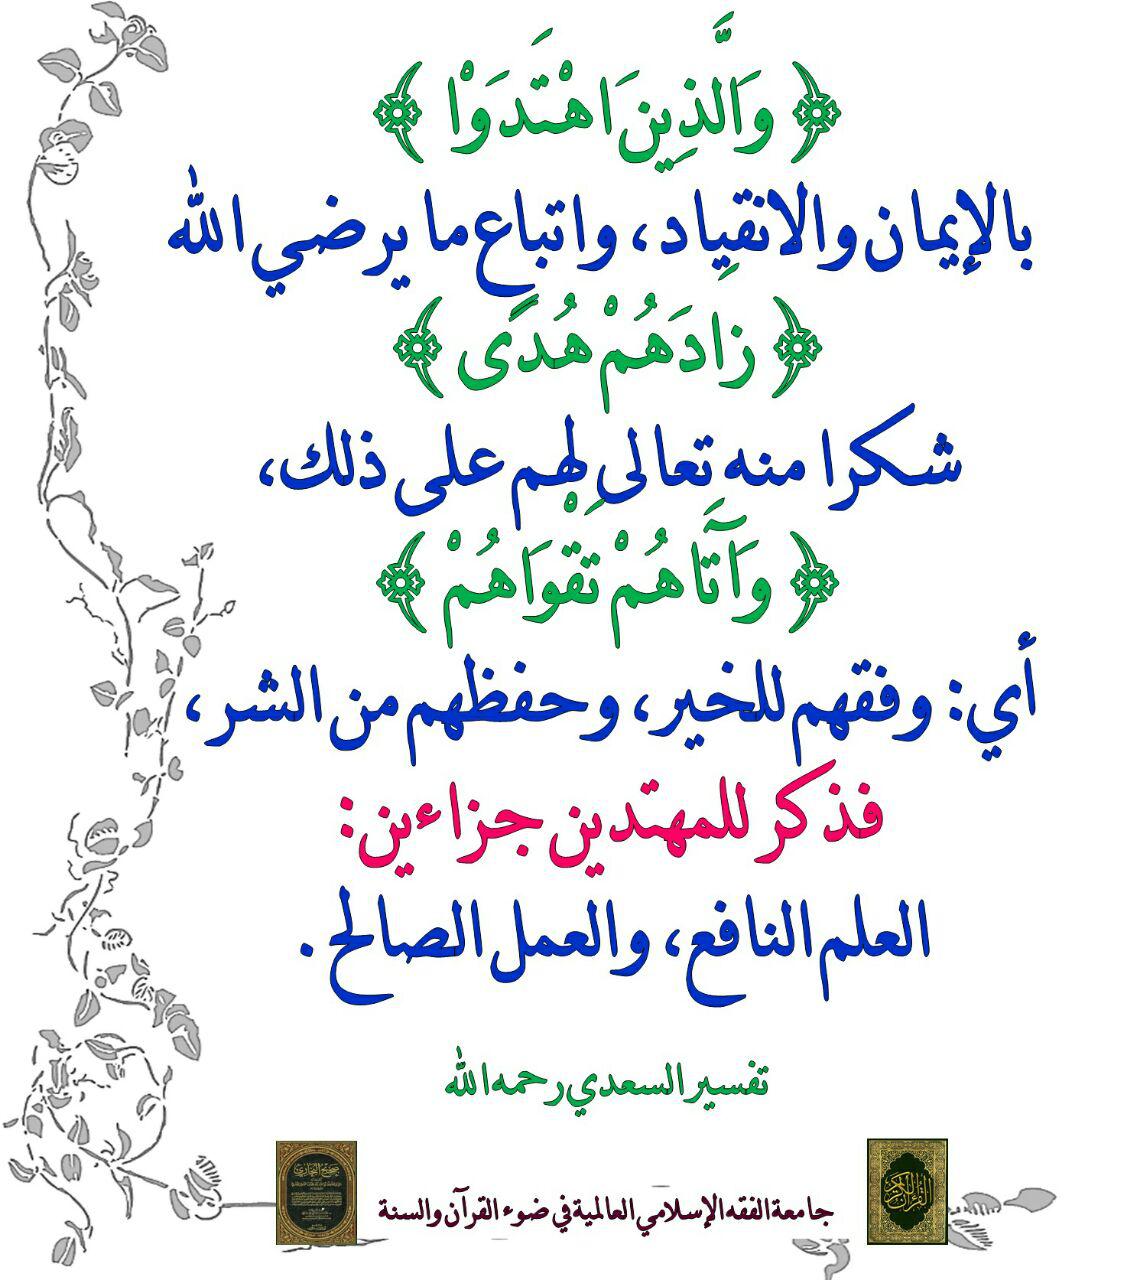 ﴿ وَالَّذِينَ اهْتَدَوْا ﴾
بالإيمان والانقياد، واتباع ما يرضي الله
﴿ زَادَهُمْ هُدًى ﴾
شكرا منه تعالى لهم على ذلك،
﴿ وَآتَاهُمْ تَقْوَاهُمْ ﴾
أي: وفقهم للخير، وحفظهم من الشر،
فذكر للمهتدين جزاءين:
العلم النافع، والعمل الصالح.
تفسير السعدي رحمه الله
صحيح البخاري
القرآن الكريم
جامعة الفقه الإسلامي العالمية في ضوء القرآن والسنة